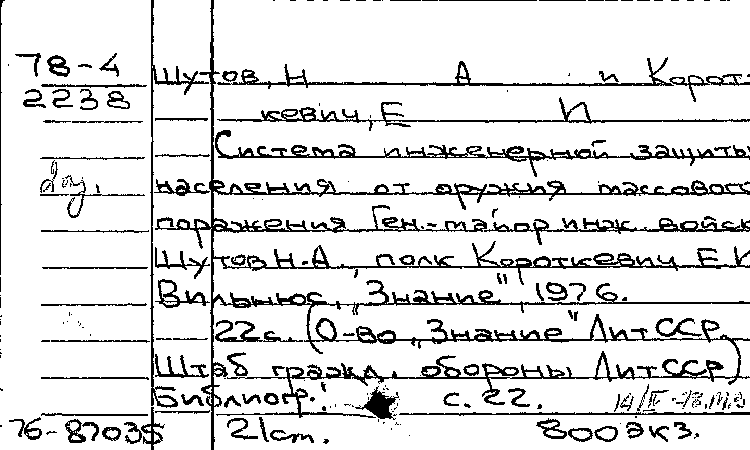 78-4
2238
Шутов, Н А и Корот-
кевич, Е И
Система инженерной защиты
населения от оружия массового
поражения Ген.-майор инж. войск
Шутов Н.А., полк Короткевич Е.И
Вильнюс, „Знание", 1976.
22с. (О-во „Знание" ЛитССР.
Штаб гражд. обороны ЛитССР)
Библиогр.: с. 22.
76-87035 21cm. 800экз.